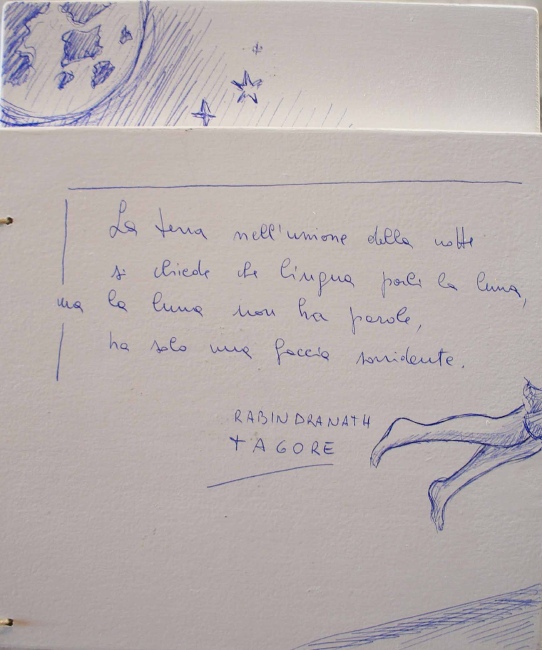 La terra nell'unione della notte
si chiede che lingua parli la luna,
ma la luna non ha parole,
ha solo una faccia sorridente.
RABINDRANATH
TAGORE